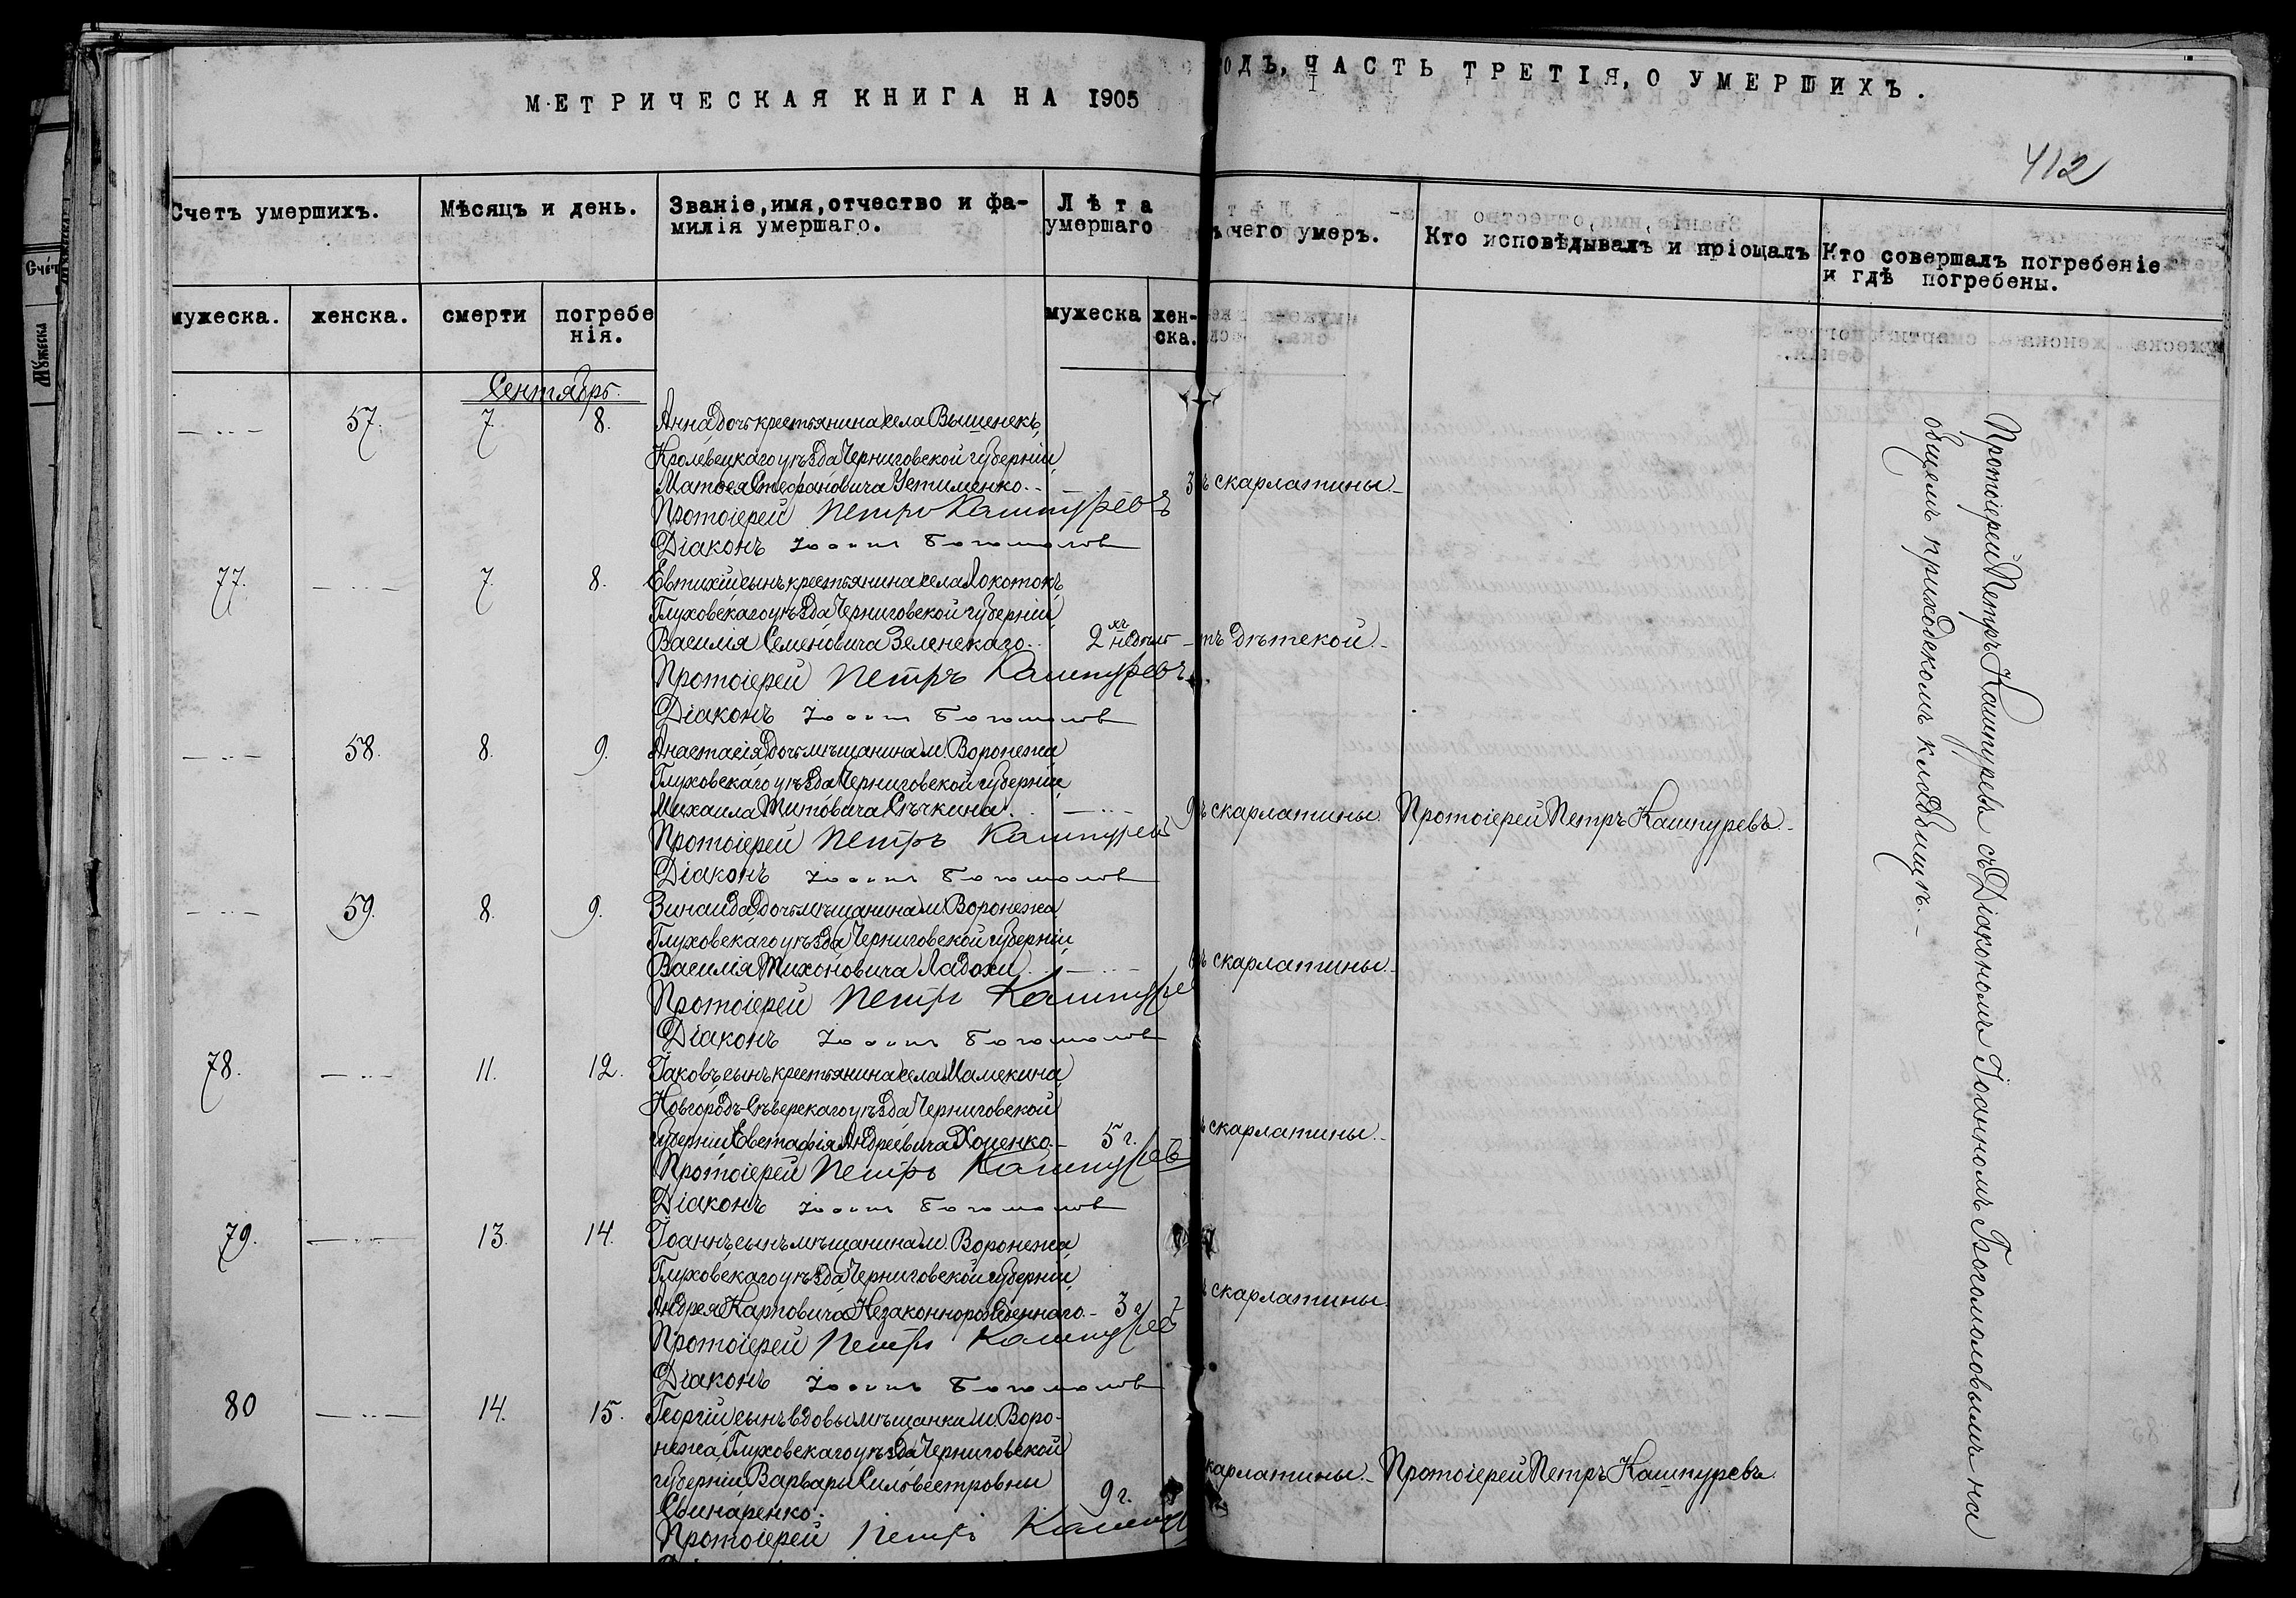 МЕТРИЧЕСКАЯ КНИГА НА 1905
ОДЪ, ЧАСТЬ ТРЕТІЯ, О УМЕРШИХЪ.
412
Счетъ умершихъ.
Мѣсяцъ и день.
Званіе, имя, отчество и фа-
милія умершаго.
Лѣта
умершаго
чего умеръ.
Кто исповѣдывалъ и пріощалъ
Кто совершалъ погребеніе
и гдѣ погребены.
мужеска.
женска.
смерти
погребе
нія.
мужеска
жен-
ска.
Сентябрь.
57. 7. 8. Анна дочь крестьянина села Вышенекъ,
Кролевецкаго уѣзда Черниговской губерніи
Матѳея Стефановича Устименко. - 3 ъ скарлатины. -
Протоіерей Петръ Кашпуревъ
Діаконъ Іоаннъ Богомоловъ
77. 7. 8. Евтихій сынъ крестьянина села Локотокъ,
Глуховскаго уѣзда Черниговской губерніи
Василія Семеновича Зеленскаго. 2хъ недѣль тъ дѣтской. -
Протоіерей Петръ Кашпуревъ
Діаконъ Іоаннъ Богомоловъ
58. 8. 9. Анастасія дочь мѣщанина м. Воронежа
Глуховскаго уѣзда Черниговской губерніи,
Михаила Титовича Сѣчкина. 9 ъ скарлатины. Протоіерей Петръ Кашпуревъ. -
Протоіерей Петръ Кашпуревъ
Діаконъ Іоаннъ Богомоловъ
59. 8. 9. Зинаида дочь мѣщанина м. Воронежа
Глуховскаго уѣзда Черниговской губерніи
Василія Тихоновича Ладохи. ъ скарлатины. -
Протоіерей Петръ Кашпуре
Діаконъ Іоаннъ Богомоловъ
78. 11. 12. Іаковъ сынъ крестьянина села Мамекина
Новгородъ-Сѣверскаго уѣзда Черниговской
губерніи Евстафія Андреевича Хоценко. - 5 г. ъ скарлатины. -
Протоіерей Петръ Кашпуревъ
Діаконъ Іоаннъ Богомоловъ
79. 13. 14. Іоаннъ сынъ мѣщанина м. Воронежа
Глуховскаго уѣзда Черниговской губерніи
Андрея Карповича Незаконнорожденнаго. - 3 г. ъ скарлатины.
Протоіерей Петръ Кашпуревъ
Діаконъ Іоаннъ Богомоловъ
80 14. 15. Георгій сынъ вдовы мѣщанки м. Воро-
нежа, Глуховскаго уѣзда Черниговской
губерніи Варвары Сильвестровны
Свинаренко. 9 г. карлатины. - Протоіерей Петръ Кашпуревъ.
Протоіерей Петръ Кашпу
Протоіерей Петръ Кашпуревъ съ Діакономъ Іоанномъ Богомоловымъ на
общемъ приходскомъ кладбищѣ. -